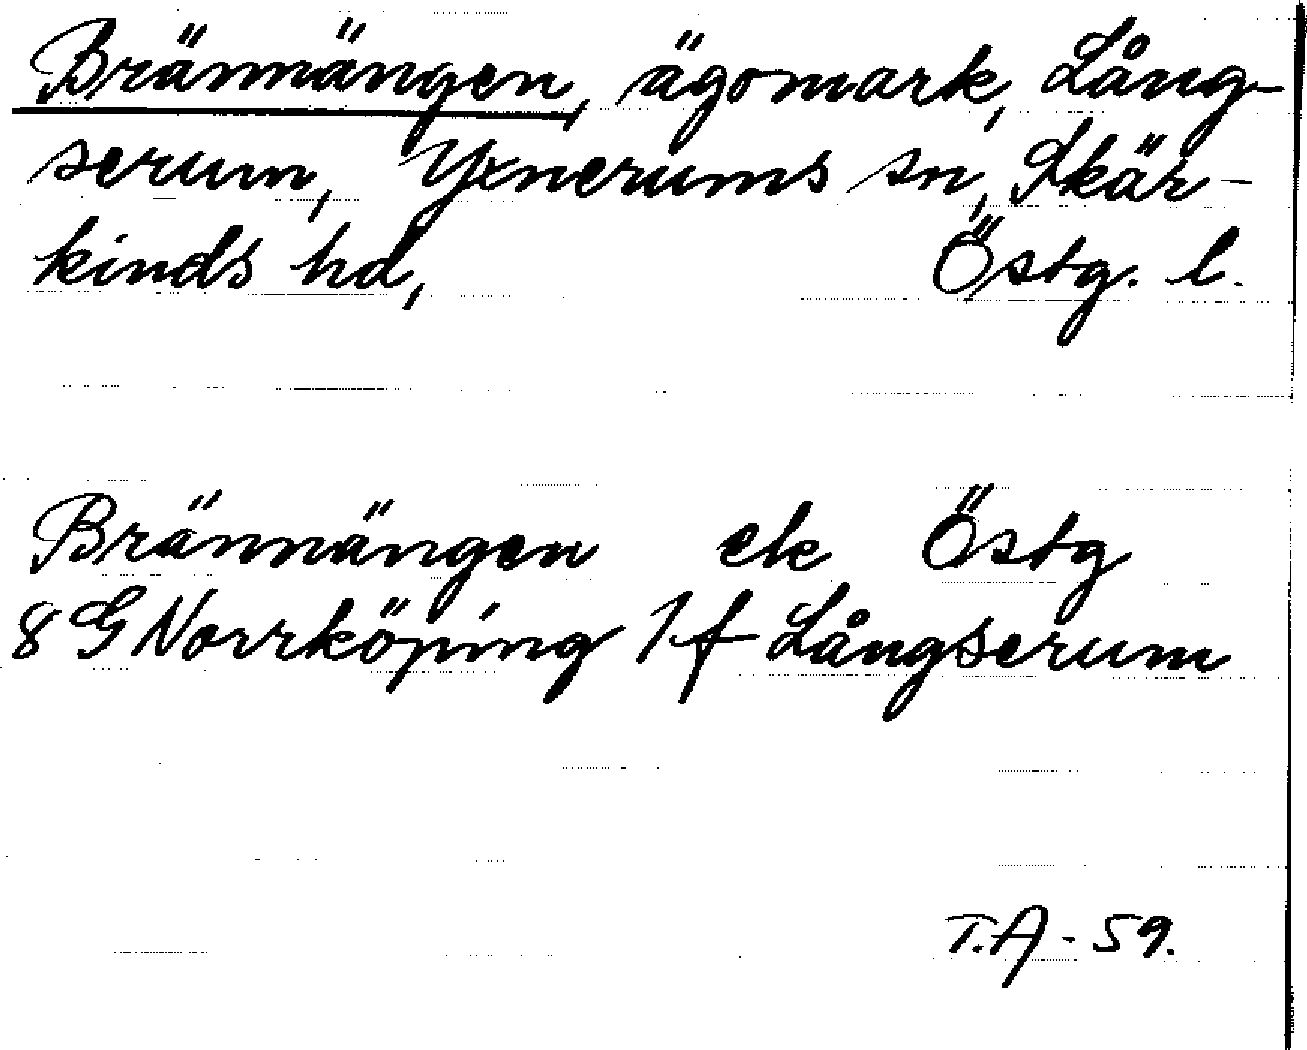 Brännängen, ägomark, Lång-
serum, Yxnerums sn, Skär-
kinds hd, Östg. l.
Brännängen ek Östg
8 G Norrköping 1 f Långserum
T.A - 59.